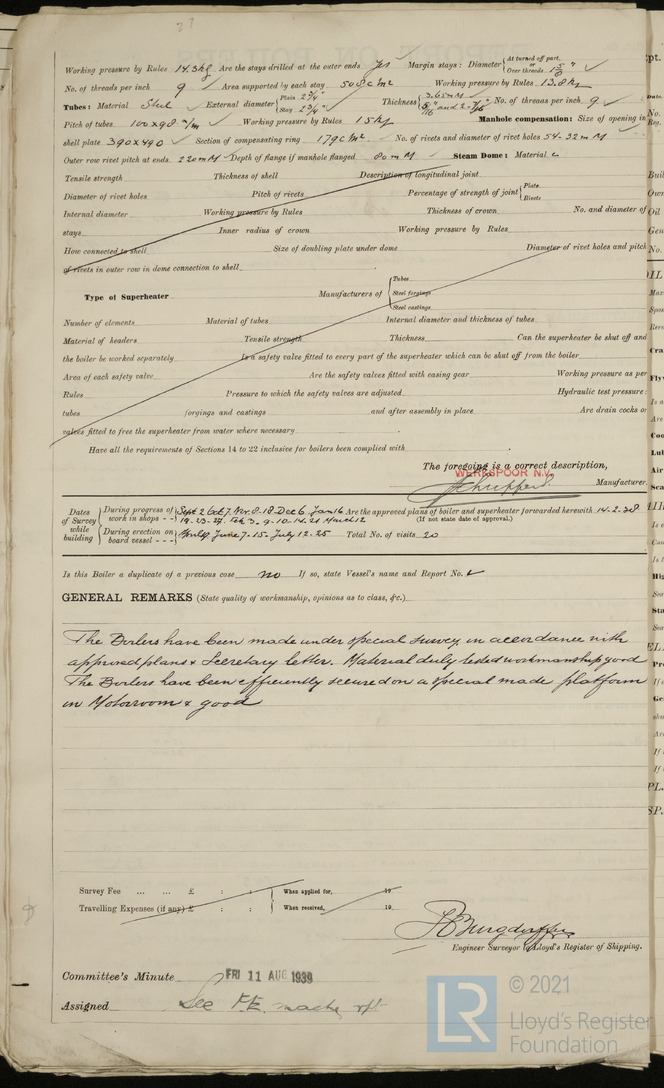 Working pressure by Rules 14.3 kg Are the stays drilled at the outer ends yes Margin stays: Diameter { At turned off part, or Over threads
No. of threads per inch 9 Area supported by each stay 508 cm² Working pressure by Rules 13.8 kg
Tubes: Material Steel External diameter { Plain 2¾" Stay 2¾" Thickness { 3.65 mM 5/16" and No. of threads per inch 9
Pitch of tubes 100 x 98 m/m Working pressure by Rules 15 kg Manhole compensation: Size of opening in
shell plate 390x490 Section of compensating ring 179 cm² No. of rivets and diameter of rivet holes 54-32 mM
Outer row rivet pitch at ends 220 mM Depth of flange if manhole flanged 80 mM Steam Dome: Material
Tensile strength Thickness of shell Description of longitudinal joint
Diameter of rivet holes Pitch of rivets Percentage of strength of joint { Plate Rivets
Internal diameter Working pressure by Rules Thickness of crown No. and diameter of
stays Inner radius of crown Working pressure by Rules
How connected to shell Size of doubling plate under dome Diameter of rivet holes and pitch
of rivets in outer row in dome connection to shell
Type of Superheater Manufacturers of { Tubes Steel forgings Steel castings
Number of elements Material of tubes Internal diameter and thickness of tubes
Material of headers Tensile strength Thickness Can the superheater be shut off and
the boiler be worked separately Is a safety valve fitted to every part of the superheater which can be shut off from the boiler
Area of each safety valve Are the safety valves fitted with easing gear Working pressure as per
Rules Pressure to which the safety valves are adjusted Hydraulic test pressure:
tubes forgings and castings and after assembly in place Are drain cocks or
valves fitted to free the superheater from water where necessary
Have all the requirements of Sections 14 to 22 inclusive for boilers been complied with
The foregoing is a correct description,
WERKSPOOR N.V.
Manufacturer.
Dates of Survey while building { During progress of work in shops - - { Sept 2 Oct 7 Nov. 8-18 Dec 6 Jan 16 19-23-27 Feb 3-9-10-14-21 March 12 Are the approved plans of boiler and superheater forwarded herewith 14-2-38 (If not state date of approval.)
During erection on board vessel - - - June 7-15- July 12-25 Total No. of visits 20
Is this Boiler a duplicate of a previous case no If so, state Vessel's name and Report No.
GENERAL REMARKS (State quality of workmanship, opinions as to class, &c.)
The Boilers have been made under special survey in accordance with
approved plans & Secretary letter. Material duly tested workmanship good
The Boilers have been efficiently secured on a special made platform
in Motorroom & good
Survey Fee ... ... £ : : When applied for, 19
Travelling Expenses (if any) £ : : When received, 19
Burgdorffer
Engineer Surveyor to Lloyd's Register of Shipping.
Committee's Minute FRI 11 AUG 1939
Assigned See F.E. mache rpt
© 2021
LR Lloyd's Register
Foundation